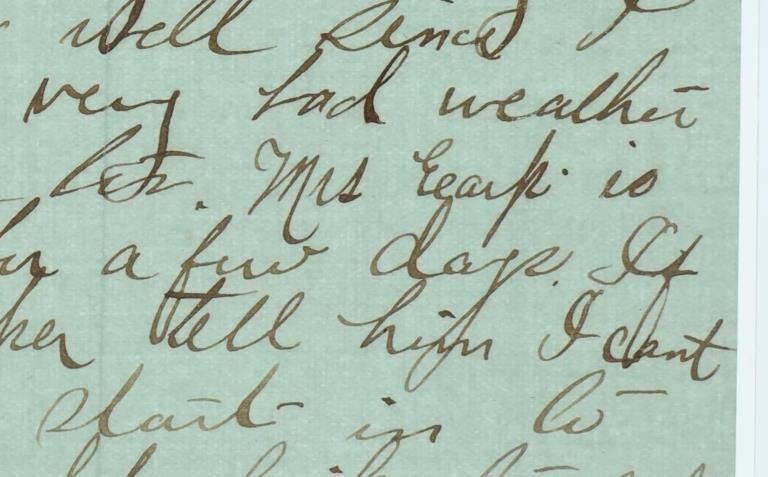 well since I
very bad weather
Mrs Eearp. is
for a few days. If
her tell him I cant
start in to